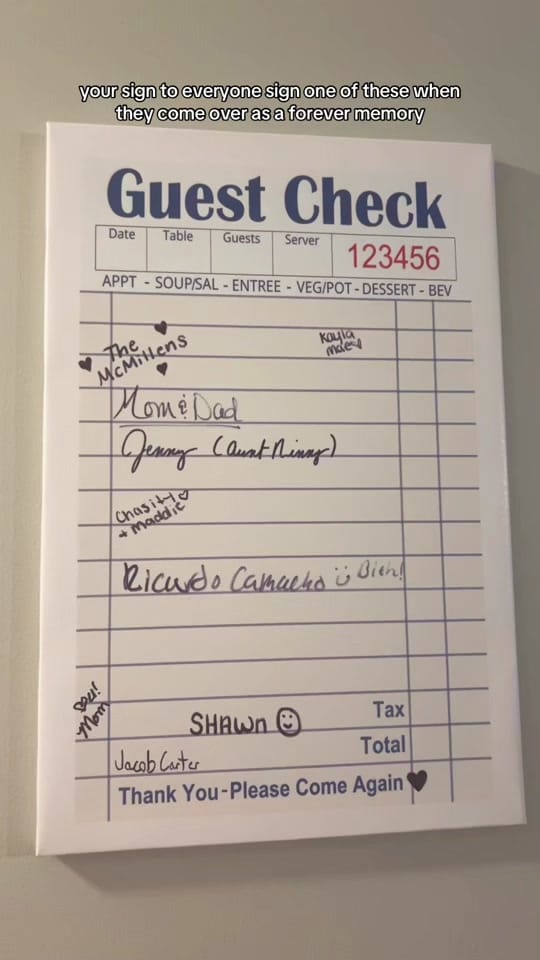 your sign to everyone sign one of these when
they come over as a forever memory
Guest Check
Date Table Guests Server 123456
APPT - SOUP/SAL - ENTREE - VEG/POT - DESSERT - BEV
The
McMillens
Kayla
Mae
Mom & Dad
Jenny (Aunt Ninny)
Chasity
+ maddie
Ricardo Camacho
Mom
SHAWn
Tax
Jacob Carter
Total
Thank You-Please Come Again